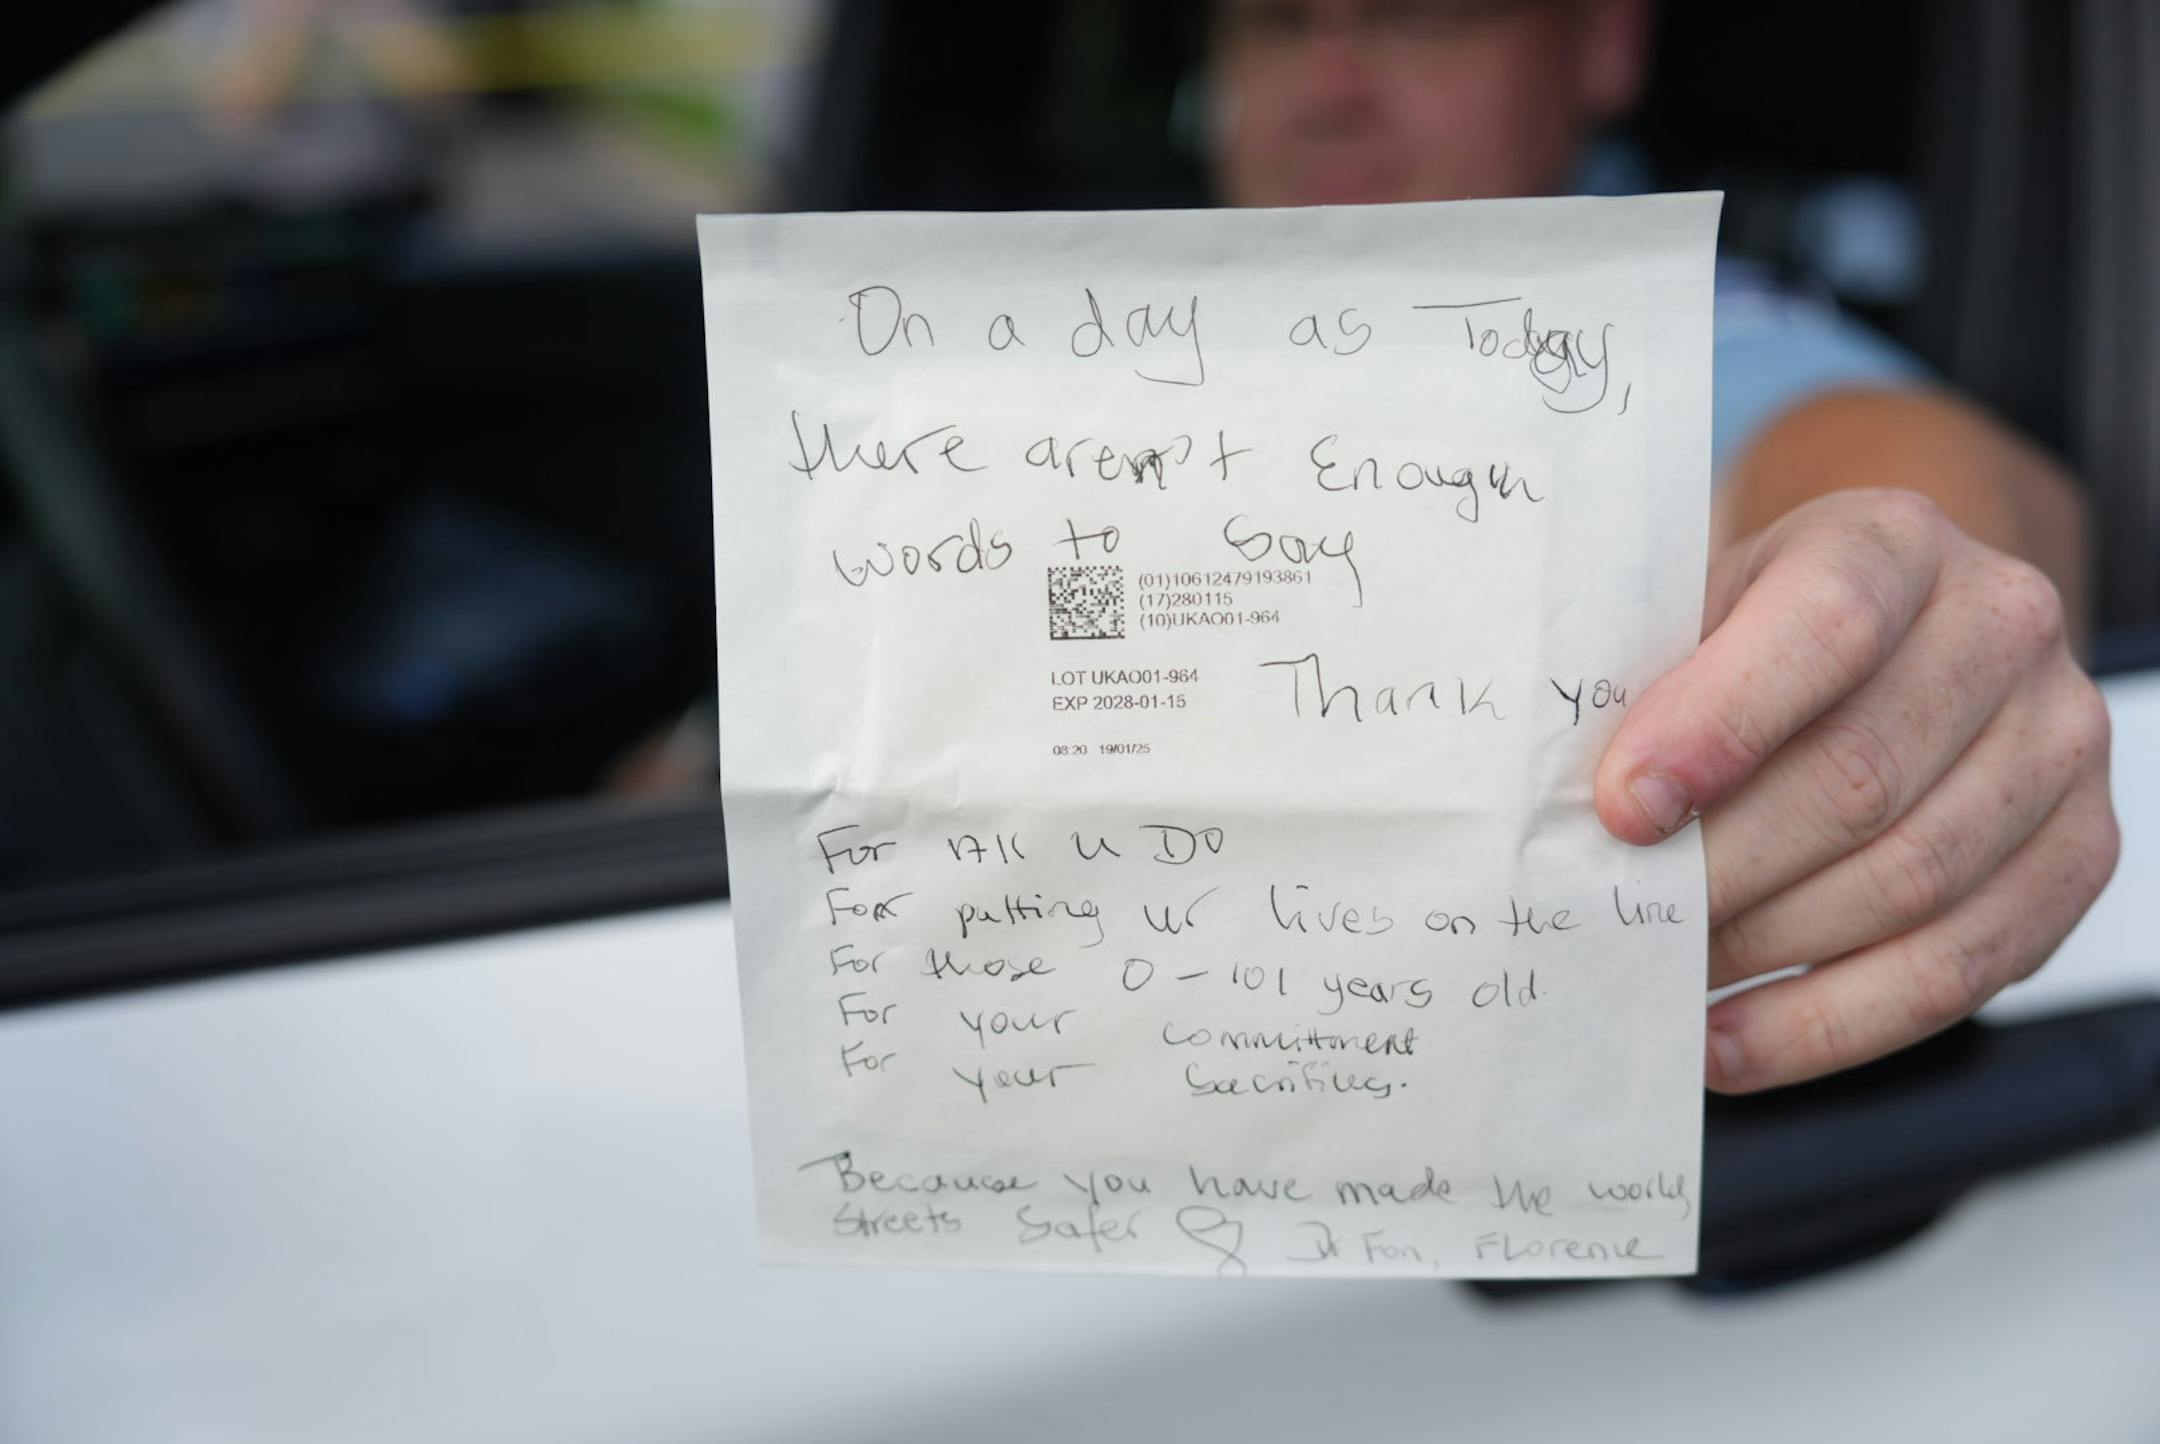 On a day as Today,
there aren't Enough
words to say
(01)10612479193861
(17)280115
(10)UKAO01-964
LOT UKAO01-964
EXP 2028-01-15
Thank you
08:20 19/01/25
For All U DO
For putting ur lives on the line
For those 0-101 years old.
For your committment
For your Sacrifices.
Because you have made the world
Streets Safer
Dr Fon, Florence